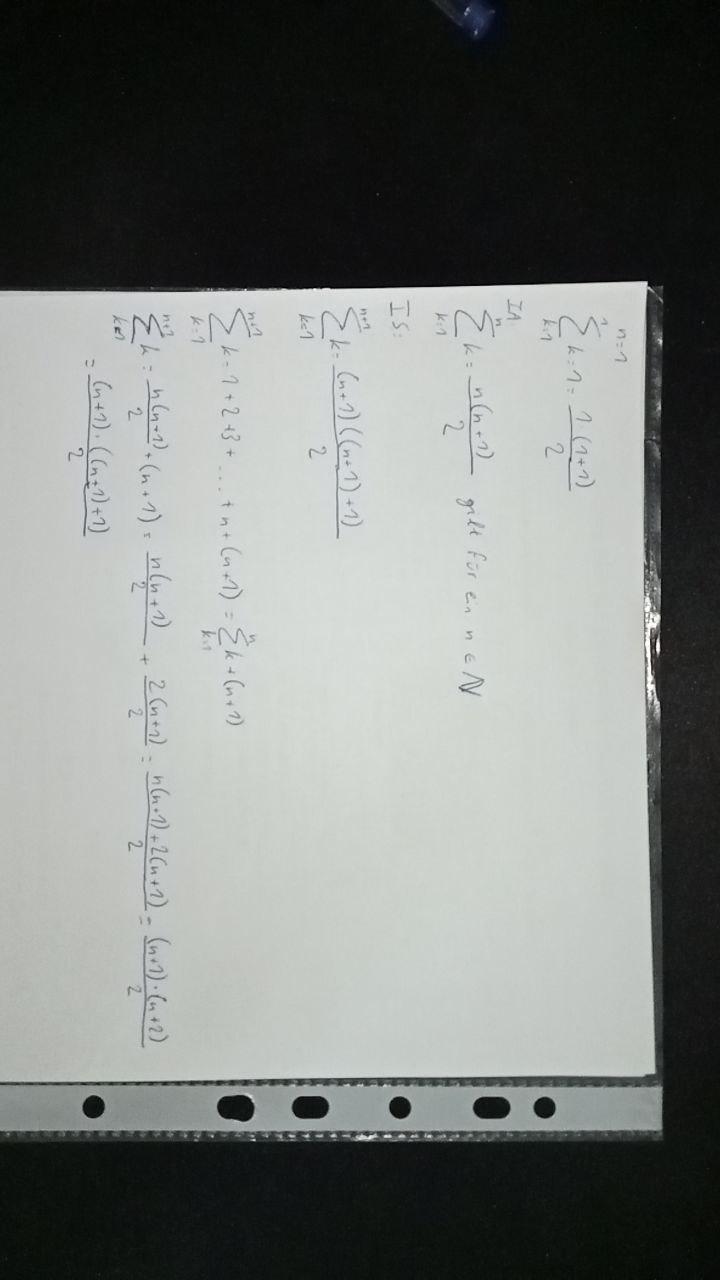 n=1
∑_{k=1}^{1} k = 1 = \frac{1·(1+1)}{2}
IA:
∑_{k=1}^{n} k = \frac{n(n+1)}{2} gilt für ein n ∈ ℕ
IS:
∑_{k=1}^{n+1} k = \frac{(n+1)((n+1)+1)}{2}
∑_{k=1}^{n+1} k = 1+2+3+ ... + n + (n+1) = ∑_{k=1}^{n} k + (n+1)
∑_{k=1}^{n+1} k = \frac{n(n+1)}{2} + (n+1) = \frac{n(n+1)}{2} + \frac{2(n+1)}{2} = \frac{n(n+1)+2(n+1)}{2} = \frac{(n+1)·(n+2)}{2}
= \frac{(n+1)·((n+1)+1)}{2}